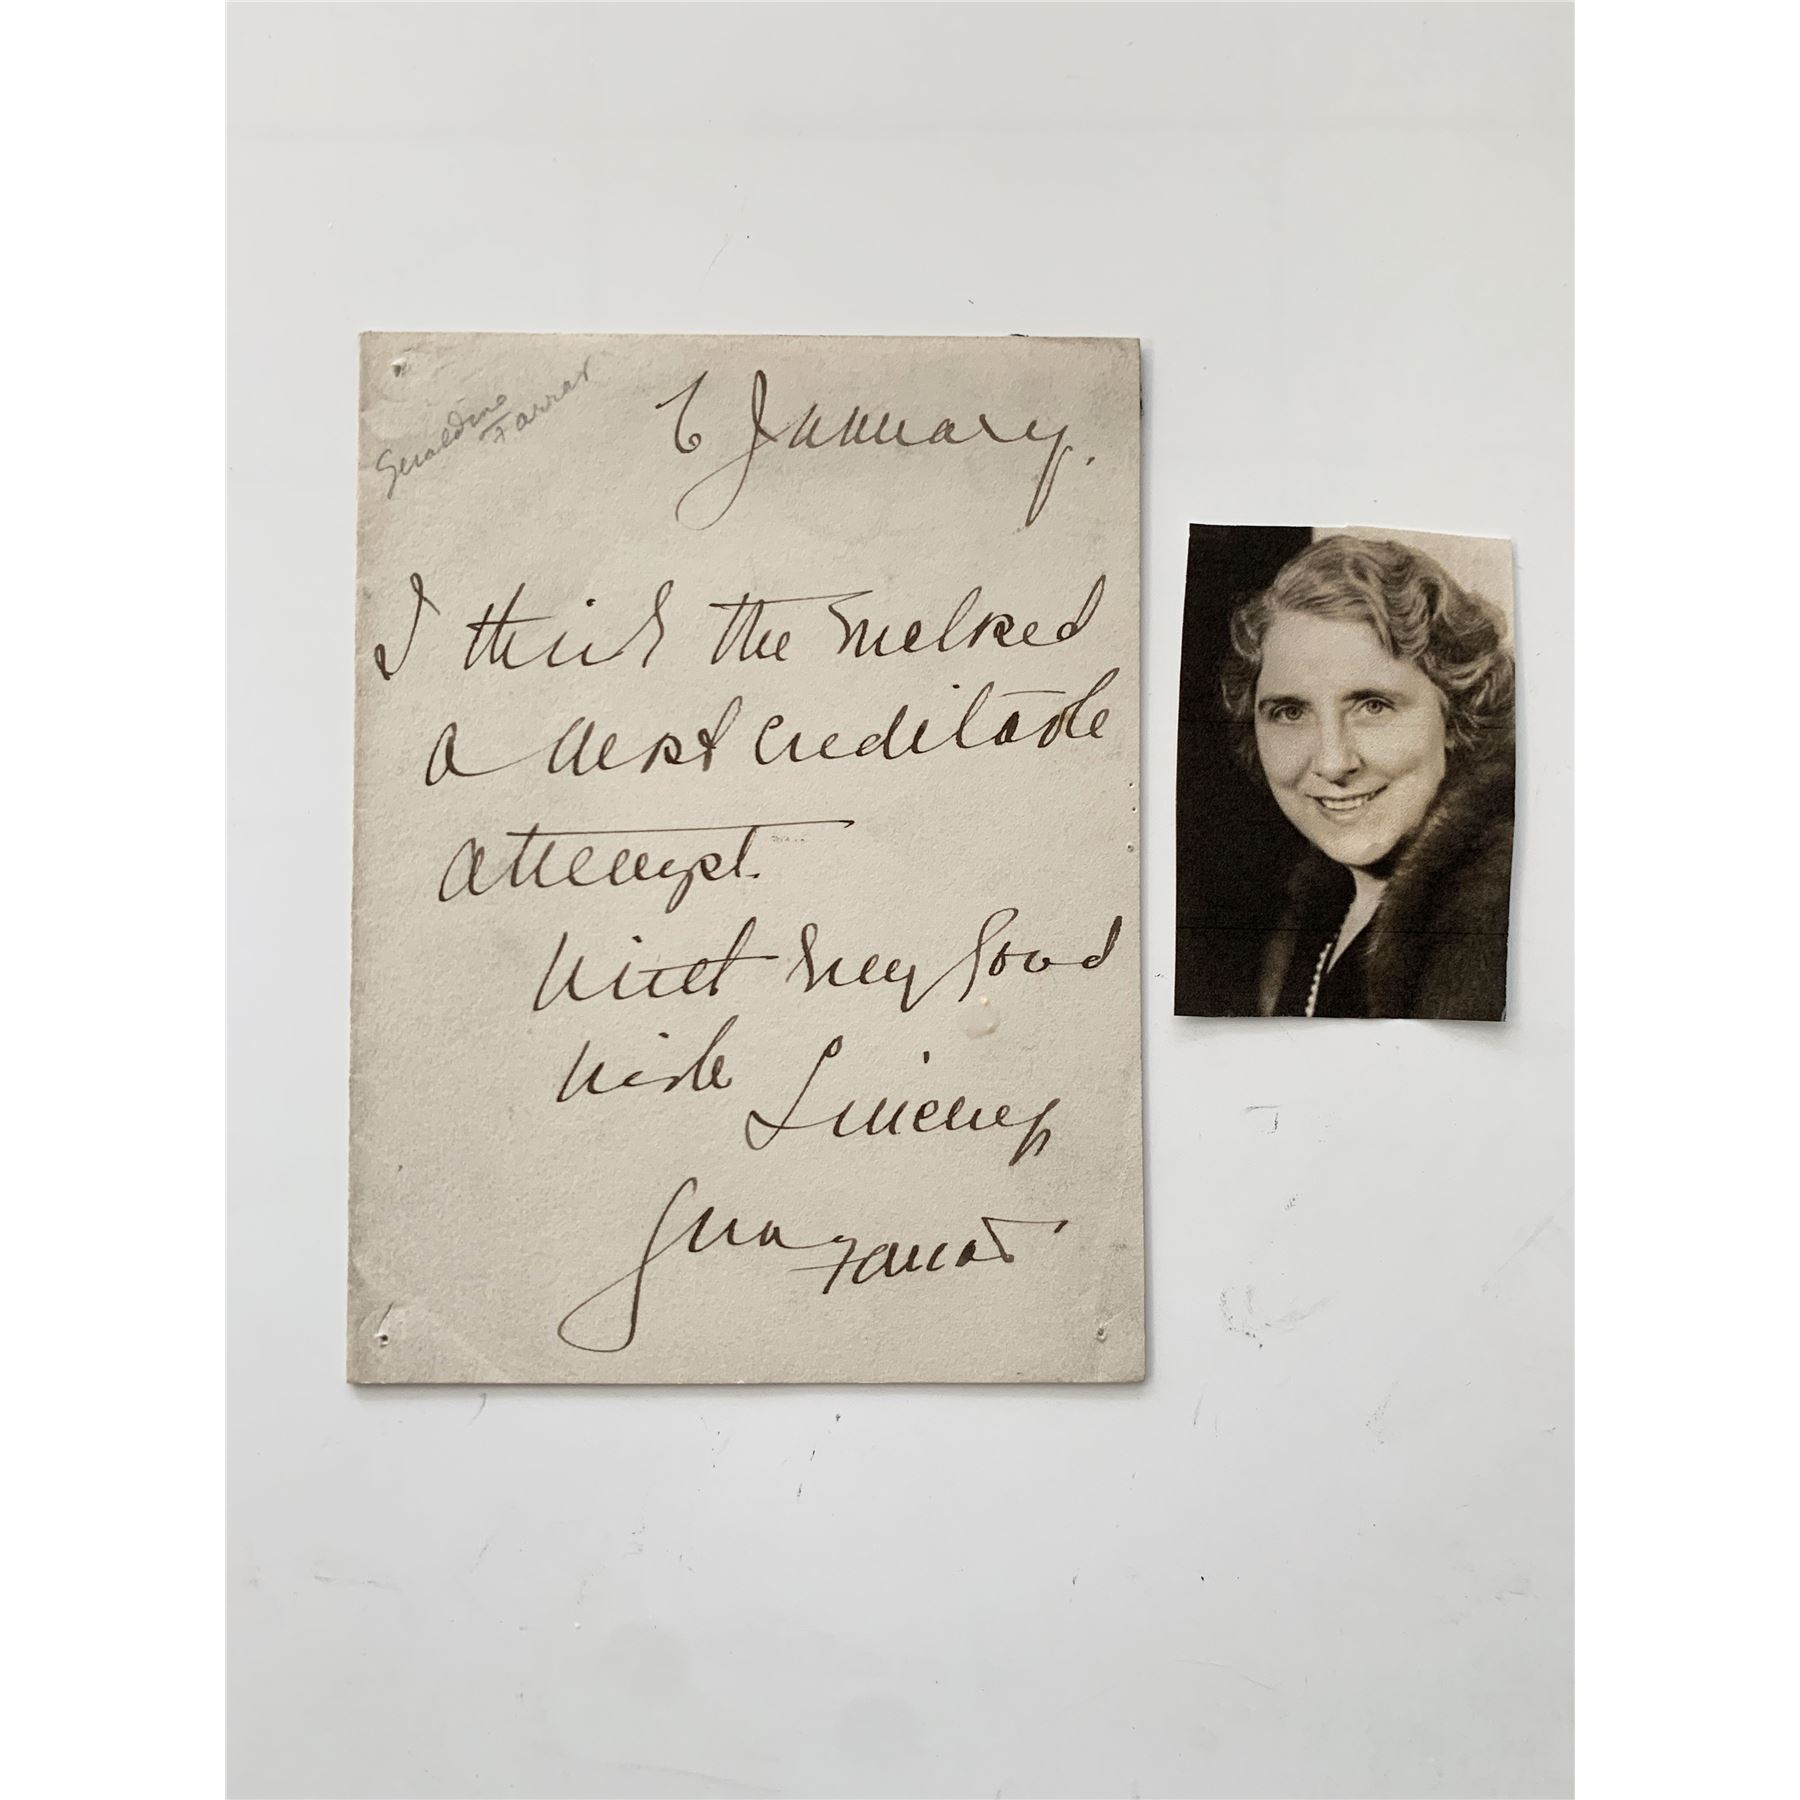 Geraldine
Farrar
6 January.
I think the
a most creditable
attempt.
With my good
wish
Sincerely
Farrar